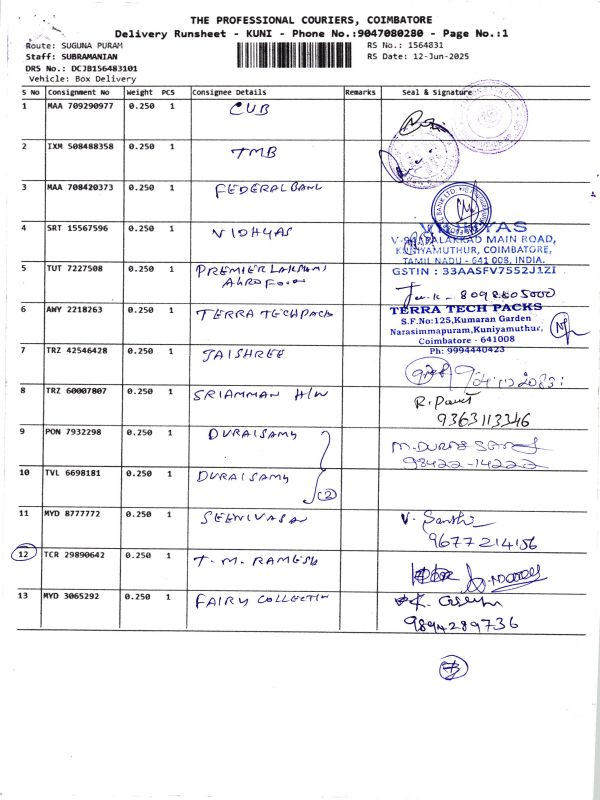 THE PROFESSIONAL COURIERS, COIMBATORE
Delivery Runsheet - KUNI - Phone No.:9047080280 - Page No.:1
Route: SUGUNA PURAM
RS No.: 1564831
Staff: SUBRAMANIAN
RS Date: 12-Jun-2025
DRS No.: DCJB156483101
Vehicle: Box Delivery
S No Consignment No Weight PCS Consignee Details Remarks Seal & Signature
1 MAA 709290977 0.250 1 CUB
2 IXM 508488358 0.250 1 TMB
3 MAA 708420373 0.250 1 FEDERAL BANK
4 SRT 15567596 0.250 1 VIDHYAS
VIDHYAS
PALAKKAD MAIN ROAD,
KUNIYAMUTHUR, COIMBATORE,
TAMIL NADU - 641 008, INDIA.
GSTIN : 33AASFV7552J1ZI
5 TUT 7227508 0.250 1 PREMIER LAKSHMI
AGRO FOOD
6 AWY 2218263 0.250 1 TERRA TECH PACK
TERRA TECH PACKS
S.F.No:125,Kumaran Garden
Narasimmapuram,Kuniyamuthur,
Coimbatore - 641008
Ph: 9994440423
7 TRZ 42546428 0.250 1 JAISHREE
8 TRZ 60007807 0.250 1 SRI AMMAN H/W
R.
9363113346
9 PON 7932298 0.250 1 DURAISAMY
M.DURAISAMY
98422-14222
10 TVL 6698181 0.250 1 DURAISAMY
(2)
11 MYD 8777772 0.250 1 SEENIVASAN
V. Santhi
9677214156
12 TCR 29890642 0.250 1 T.M. RAMESH
13 MYD 3065292 0.250 1 FAIRY COLLECTIN
9894289736